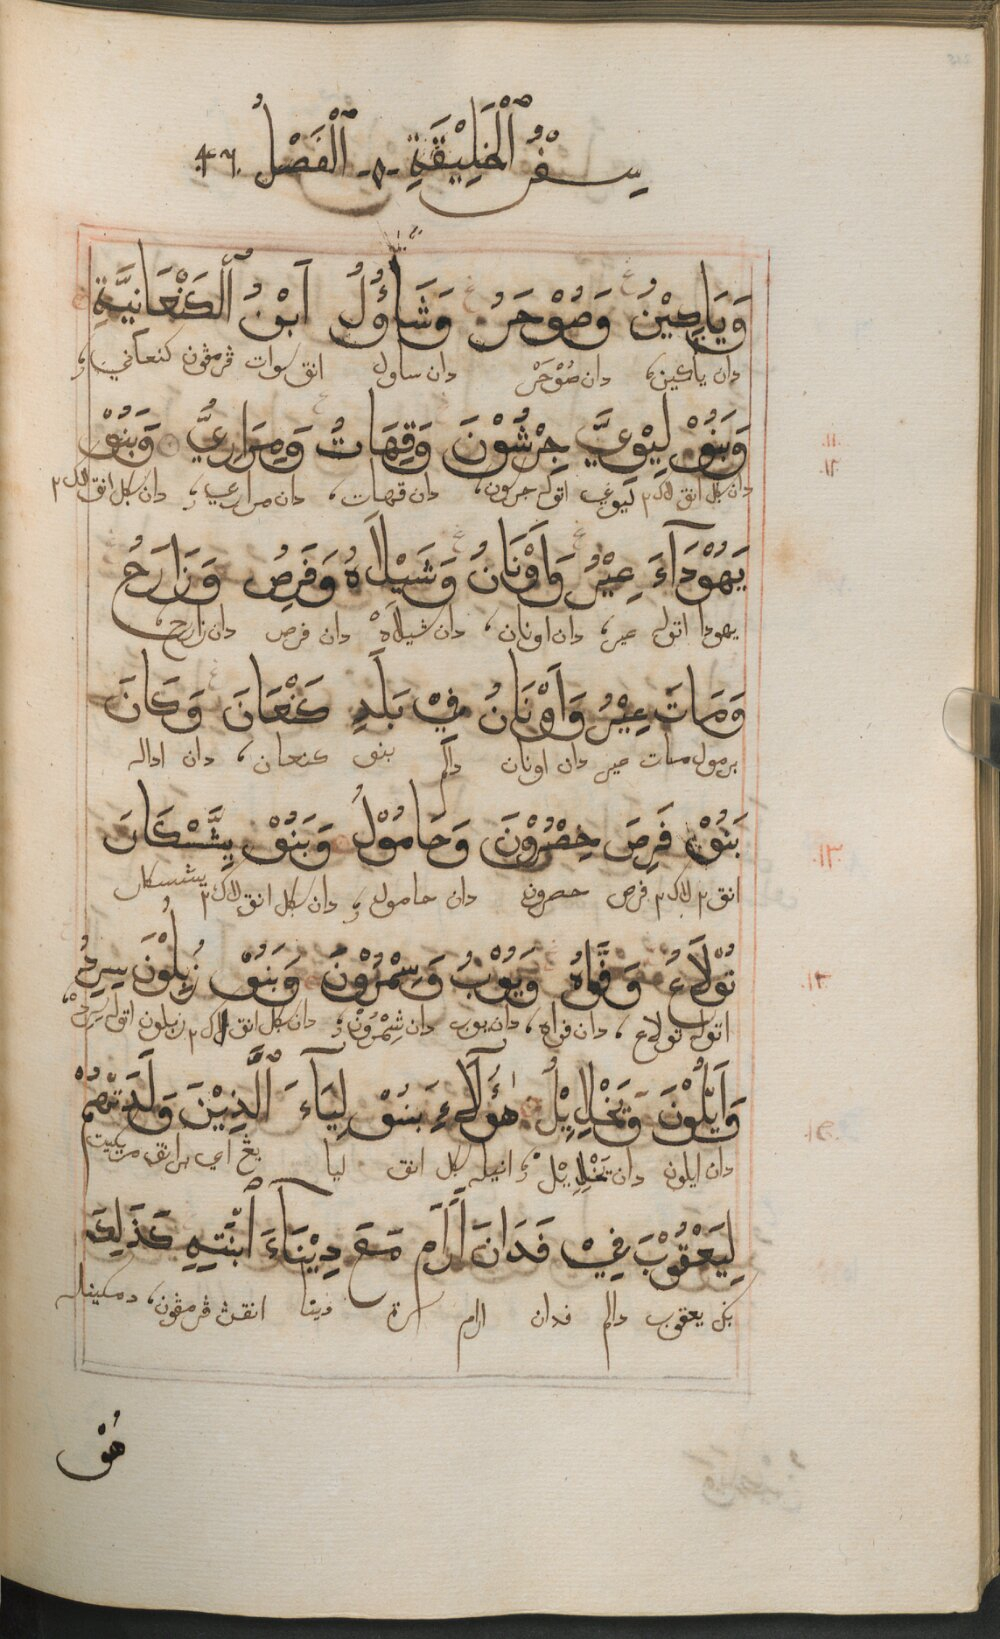 سِفْرُ ٱلْخَلِيْقَةِ -٥- ٱلْفَصْلُ ٤٦
وَيَاكِيْنُ وَصُوْحَرُ وَشَاؤُلُ ٱبْنُ ٱلْكَنْعَانِيَّةِ
دان ياكين، دان صُوْحَرْ دان ساول انق سوات ڤرمڤون كنعاني
وَبَنُوْ لِيْوِيَّ جِرْشُوْنَ وَقِهَاتُ وَمِرَارِيُّ وَبَنُوْ
دان كل انق لاك٢ ليوي اتوله جرسون، دان قهات، دان مراري، دان كل انق لاك٢
يَهُوْدَآءَ عِيْرُ وَاَوْنَانُ وَشَيْلَاهُ وَفَرِصُ وَزَارَحُ
يهودا اتوله عير، دان اونان، دان شيلاهْ دان فرص دان زارح،
وَمَاتَ عِيْرُ وَاَوْنَانُ فِيْ بَلَدِ كَنْعَانَ وَكَانَ
برمول مات عير دان اونان دالم بنو كنعان، دان اداله
بَنُوْ فَرِصَ حِصْرُوْنَ وَحَامُوْلُ وَبَنُوْ يِشَّسْكَارَ
انق٢ لاك٢ فرص حصرون دان حامول دان كل انق لاك٢ يشسكار
تُوْلَاعُ وَفَوَّاهُ وَيُوْبُ وَسِمْرُوْنَ وَبَنُوْ زُبِلُوْنَ سِرِدُ
اتوله تولاع، دان فواه، دان يوب دان شِمْرُوْن دان كل انق لاك٢ زبلون اتوله سَرِدْ،
وَاَيْلُوْنَ وَيَخْلِاِيْلُ هٰؤُلَآءِ بَنُوْ لِيَآءَ ٱلَّذِيْنَ وَلَدَتْهُمْ
دان ايلون دان يَخْلِاِيْلْ انيله كل انق ليا يڠ اي برانق
لِيَعْقُوْبَ فِيْ فَدَانَ اَرَامَ مَعَ دِيْنَآءَ ٱبْنَتِهِ كَذَلِكَ
بݢي يعقوب دالم فدان ارام سرة دينا انقث ڤرمڤون، دمكينله
هُوْ